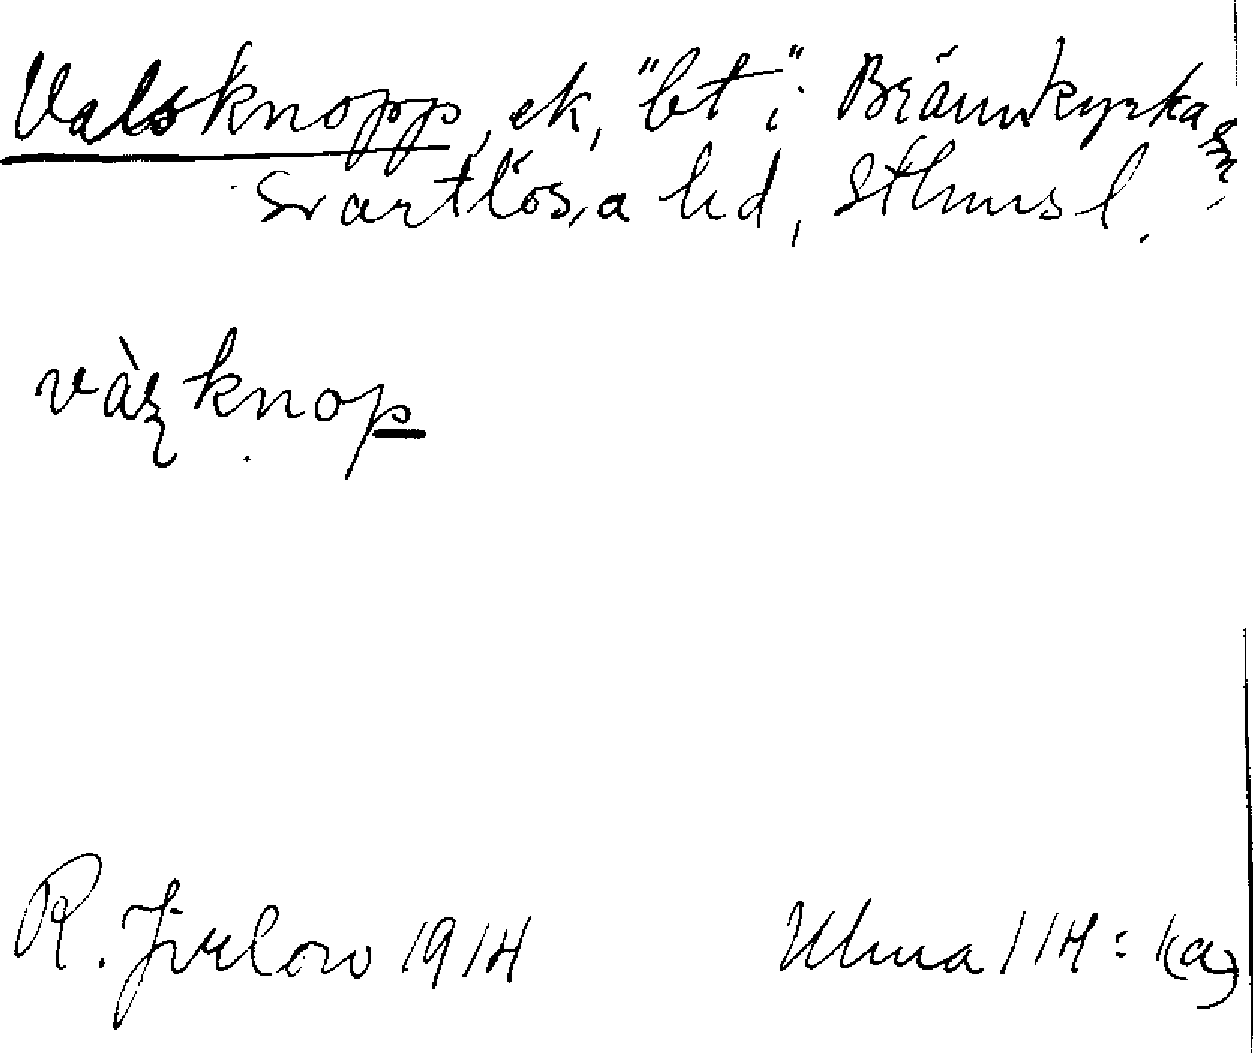 Valsknopp, ek, "bt" i Brännkyrka sn,
Svartlösa hd, Sthms l.
vàʂknop
R. Jirlow 1914
Ulma 114:1(a)